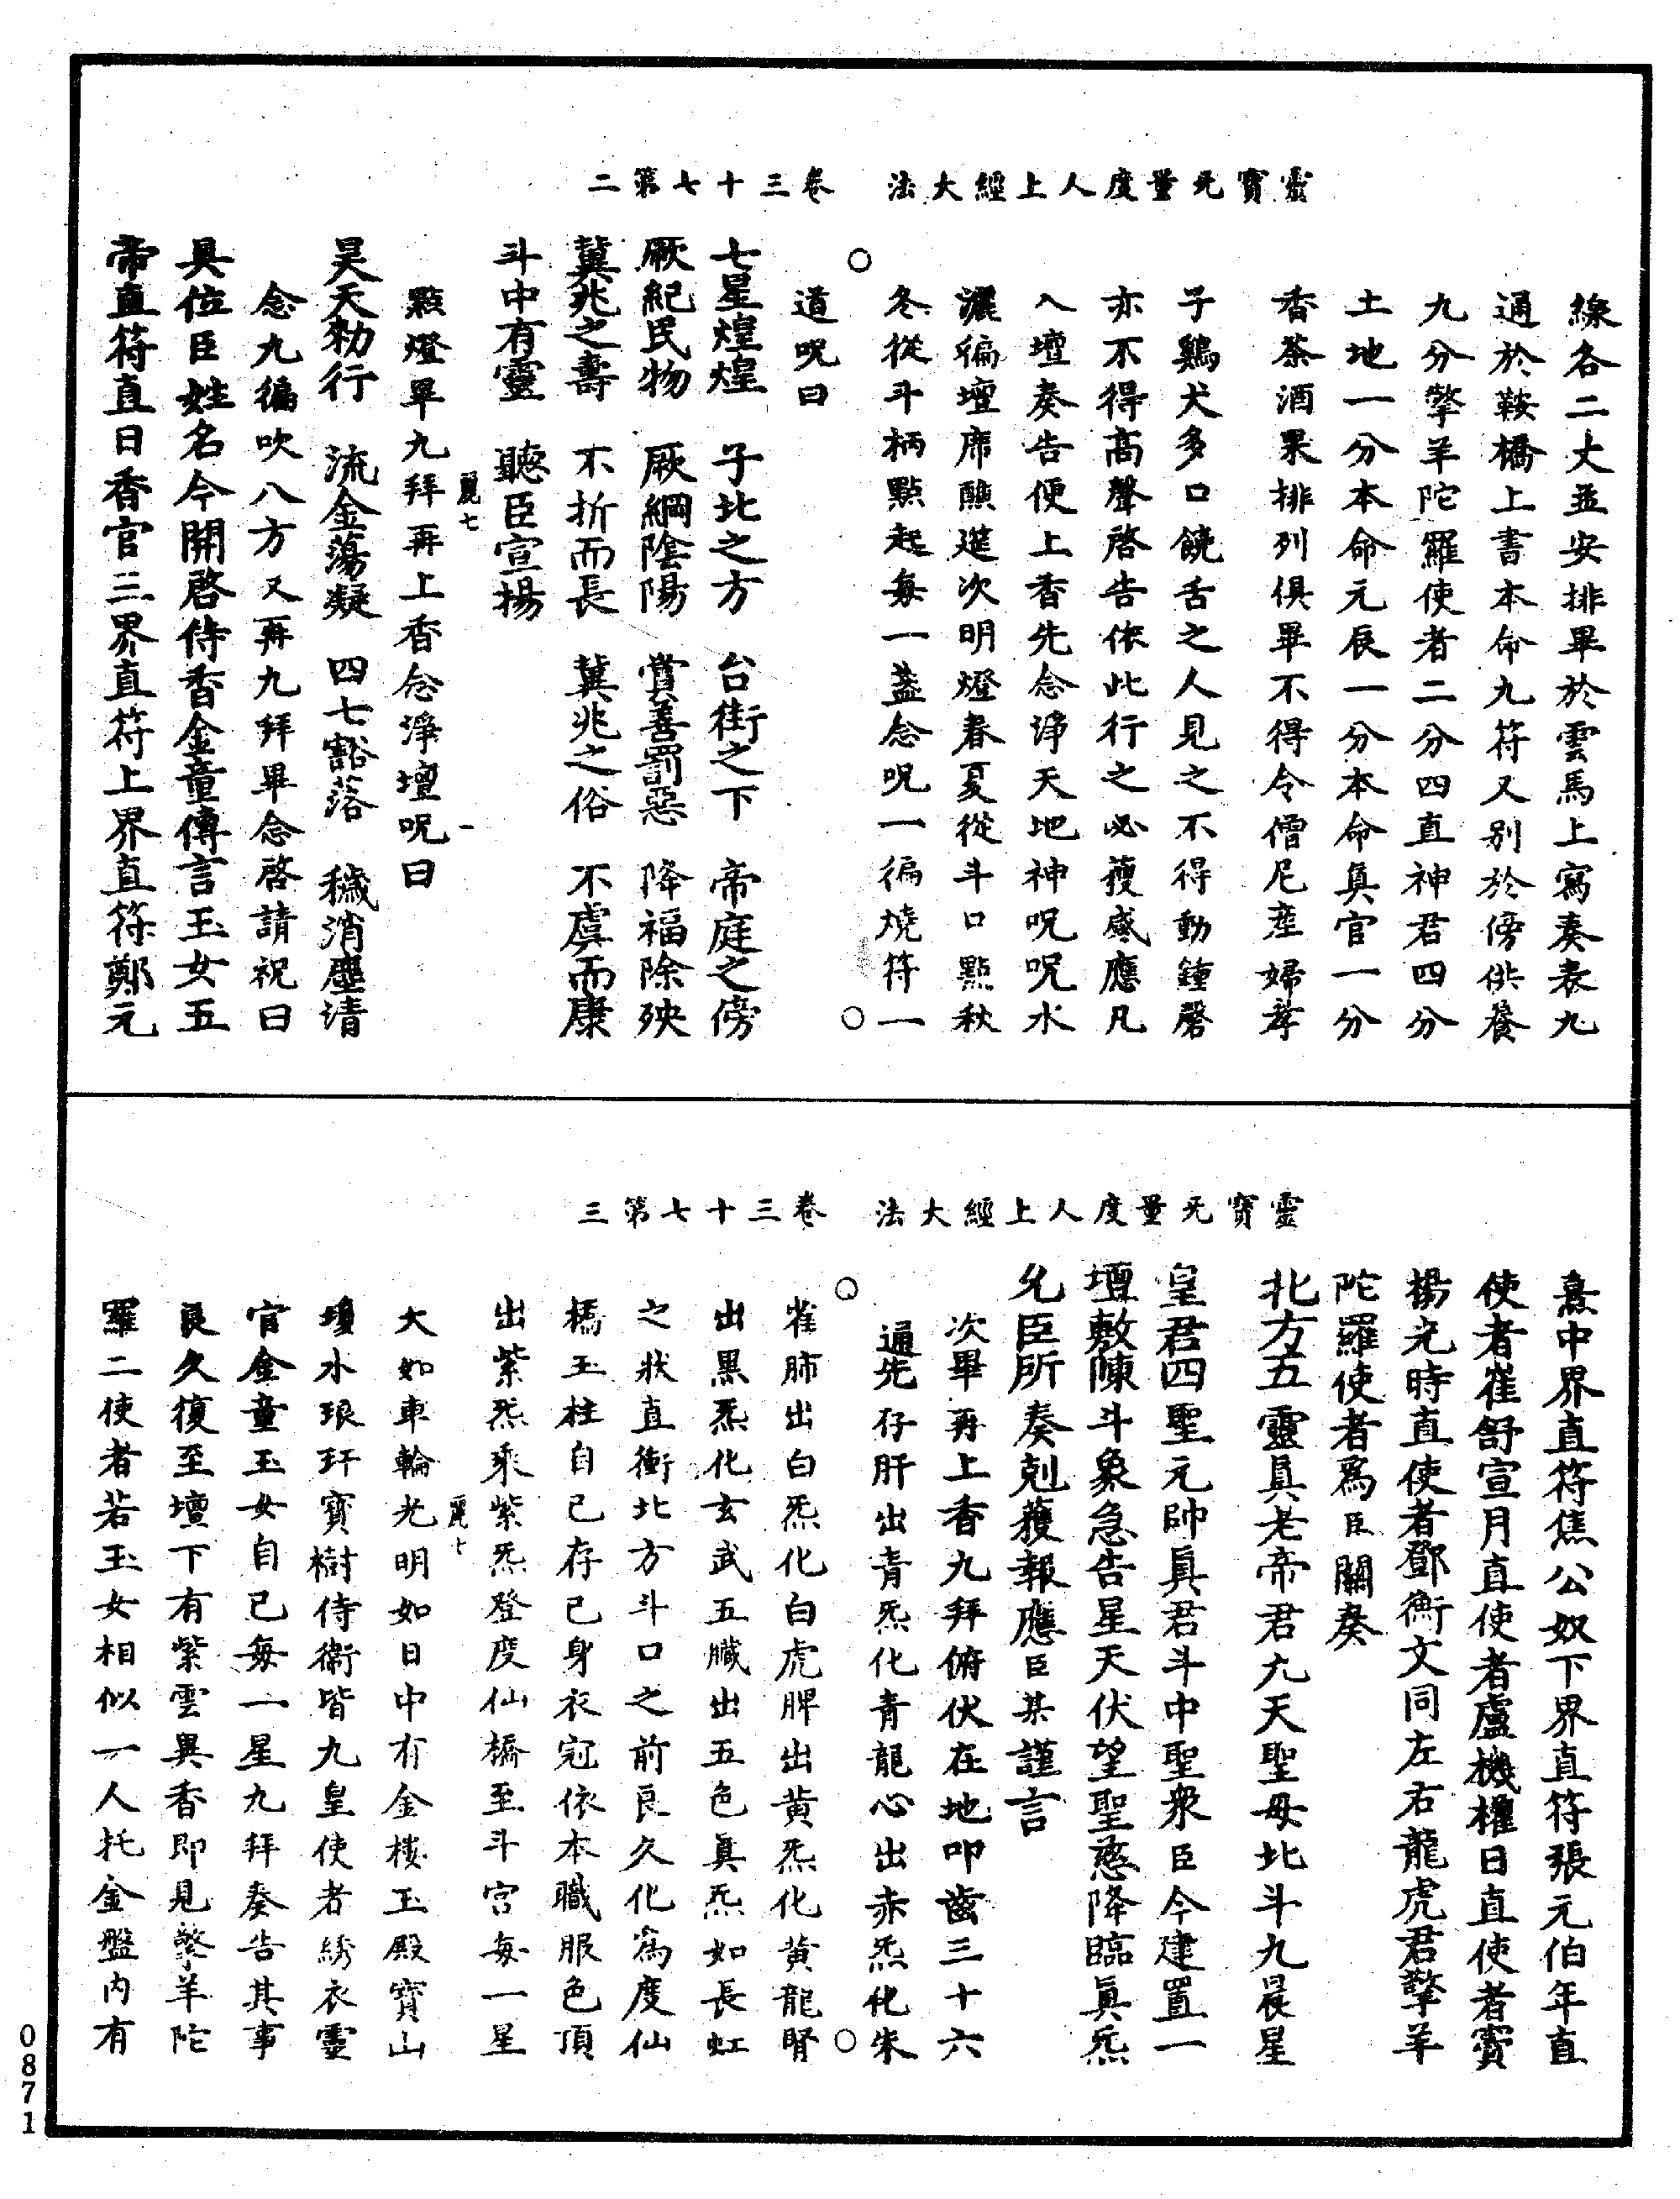 靈寶无量度人上經大法 卷三十七第二
線各二丈並安排畢於雲馬上寫奏表九
通於鞍橋上書本命九符又別於傍供養
九分擎羊陀羅使者二分四直神君四分
土地一分本命元辰一分本命眞官一分
香茶酒果排列俱畢不得令僧尼產婦孝
子鷄犬多口饒舌之人見之不得動鍾磬
亦不得高聲啓告依此行之必獲感應凡
入壇奏告便上香先念淨天地神呪呪水
灑徧壇席醮筵次明燈春夏從斗口點秋
冬從斗柄點起每一盞念呪一徧燒符一
道呪曰
七星煌煌 子北之方 台街之下 帝庭之傍
厥紀民物 厥綱陰陽 賞善罰惡 降福除殃
冀兆之壽 不折而長 冀兆之俗 不虞而康
斗中有靈 聽臣宣揚
麗七 一
點燈畢九拜再上香念淨壇呪曰
昊天勑行 流金蕩凝 四七豁落 穢消塵清
念九徧吹八方又再九拜畢念啓請祝曰
具位臣姓名今開啓侍香金童傳言玉女五
帝直符直日香官三界直符上界直符鄭元
靈寶无量度人上經大法 卷三十七第三
熹中界直符焦公奴下界直符張元伯年直
使者崔舒宣月直使者盧機權日直使者竇
揚光時直使者鄧衡文同左右龍虎君擎羊
陀羅使者爲臣關奏
北方五靈眞老帝君九天聖母北斗九晨星
皇君四聖元帥眞君斗中聖衆臣今建置一
壇敷陳斗象急告星天伏望聖慈降臨眞炁
允臣所奏剋獲報應臣某謹言
次畢再上香九拜俯伏在地叩齒三十六
通先存肝出青炁化青龍心出赤炁化朱
雀肺出白炁化白虎脾出黃炁化黃龍腎
出黑炁化玄武五臟出五色眞炁如長虹
之狀直衝北方斗口之前良久化爲度仙
橋玉柱自已存已身衣冠依本職服色頂
出紫炁乘紫炁登度仙橋至斗宮每一星
麗七
大如車輪光明如日中有金樓玉殿寶山
瓊水琅玕寶樹侍衞皆九皇使者綉衣靈
官金童玉女自已每一星九拜奏告其事
良久復至壇下有紫雲異香即見擎羊陀
羅二使者若玉女相似一人托金盤內有
0871